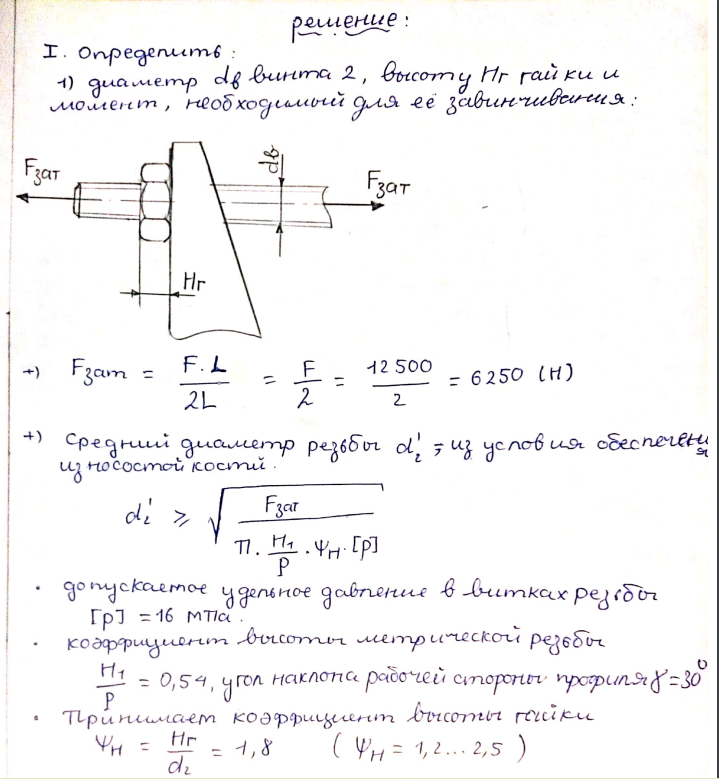 решение:
I. Определить:
1) диаметр dв винта 2, высоту Hг гайки и
момент, необходимый для её завинчивания:
Fзат
dв
Fзат
Hг
+) Fзат = F.L / 2L = F / 2 = 12 500 / 2 = 6250 (Н)
+) Средний диаметр резьбы d₂' , из условия обеспечения
износостойкости.
d₂' ≥ √ Fзат / π · H₁/P · ψн · [p]
· допускаемое удельное давление в витках резьбы
[p] = 16 МПа.
· коэффициент высоты метрической резьбы
H₁/P = 0,54, угол наклона рабочей стороны профиля γ = 30°
· Принимает коэффициент высоты гайки
ψн = Hг/d₂ = 1,8 ( ψн = 1,2...2,5 )